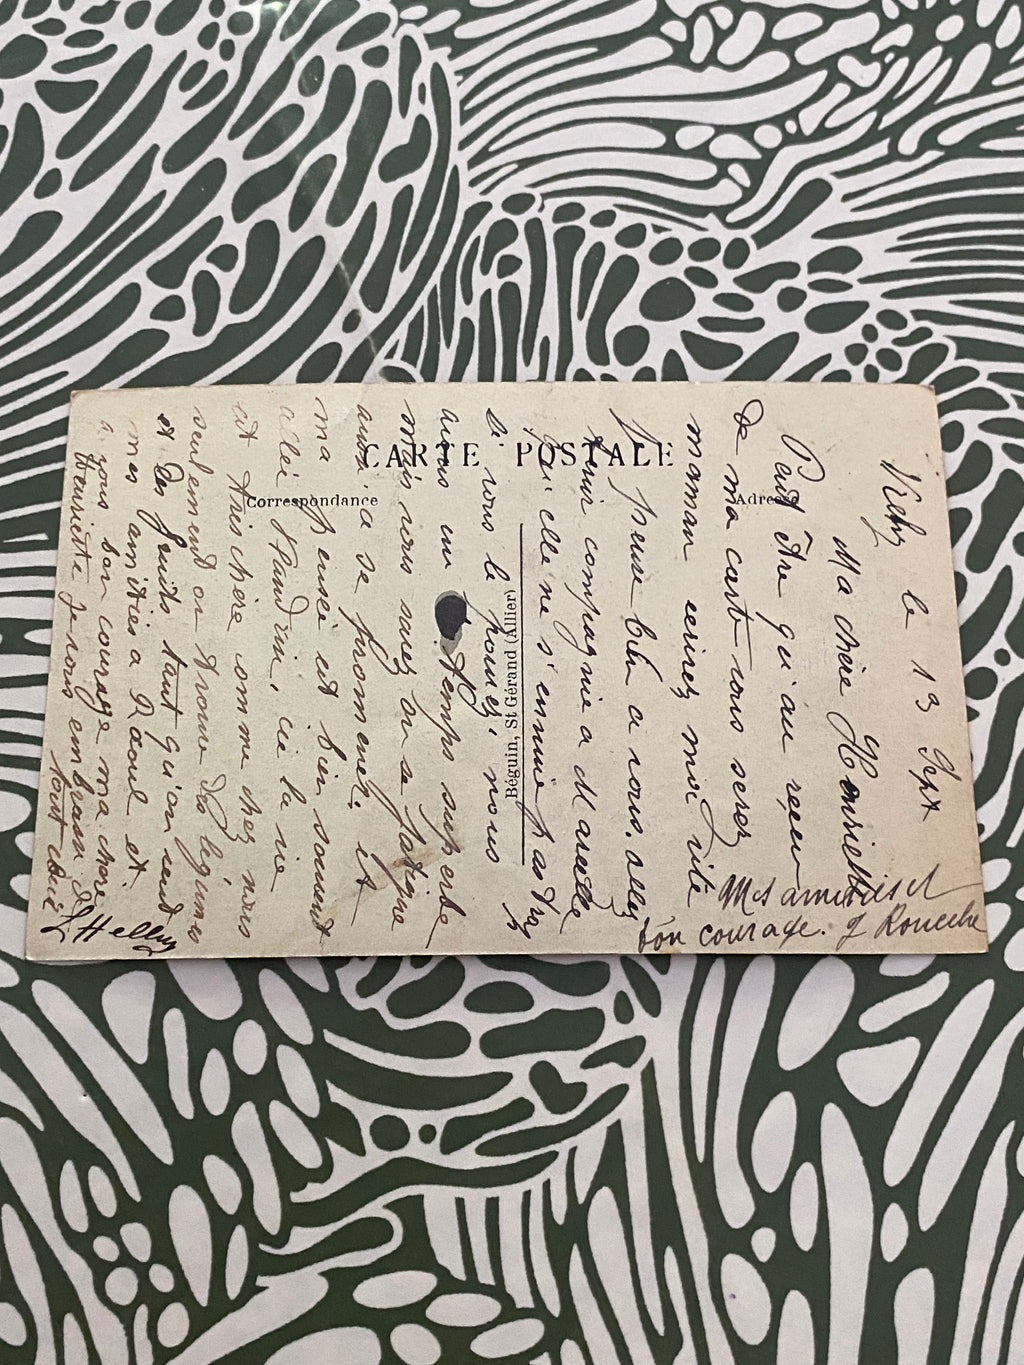 CARTE POSTALE
Correspondance
Adresse
Béguin, St Gérand (Allier)
Vichy le 13 Sept
Ma chère Henriette
Peut Être qu'au reçu
de ma carte vous serez
maman ecrivez moi vite
Je pense bien a vous. allez
tenir compagnie a Marcelle
qui elle ne s'ennuie pas trop
si vous le pouvez nous
avons un temps superbe
mais vous savez on se fatigue
aussi a se promener, et
ma pensée est bien souvent
allée, ici la vie
est très chère comme chez nous
seulement on trouve des légumes
et des fruits tant qu'on veut
mes amitiés a Raoul et
a vous bon courage ma chère
Henriette je vous embrasse de
tout cœur
Mes amitiés et
bon courage.